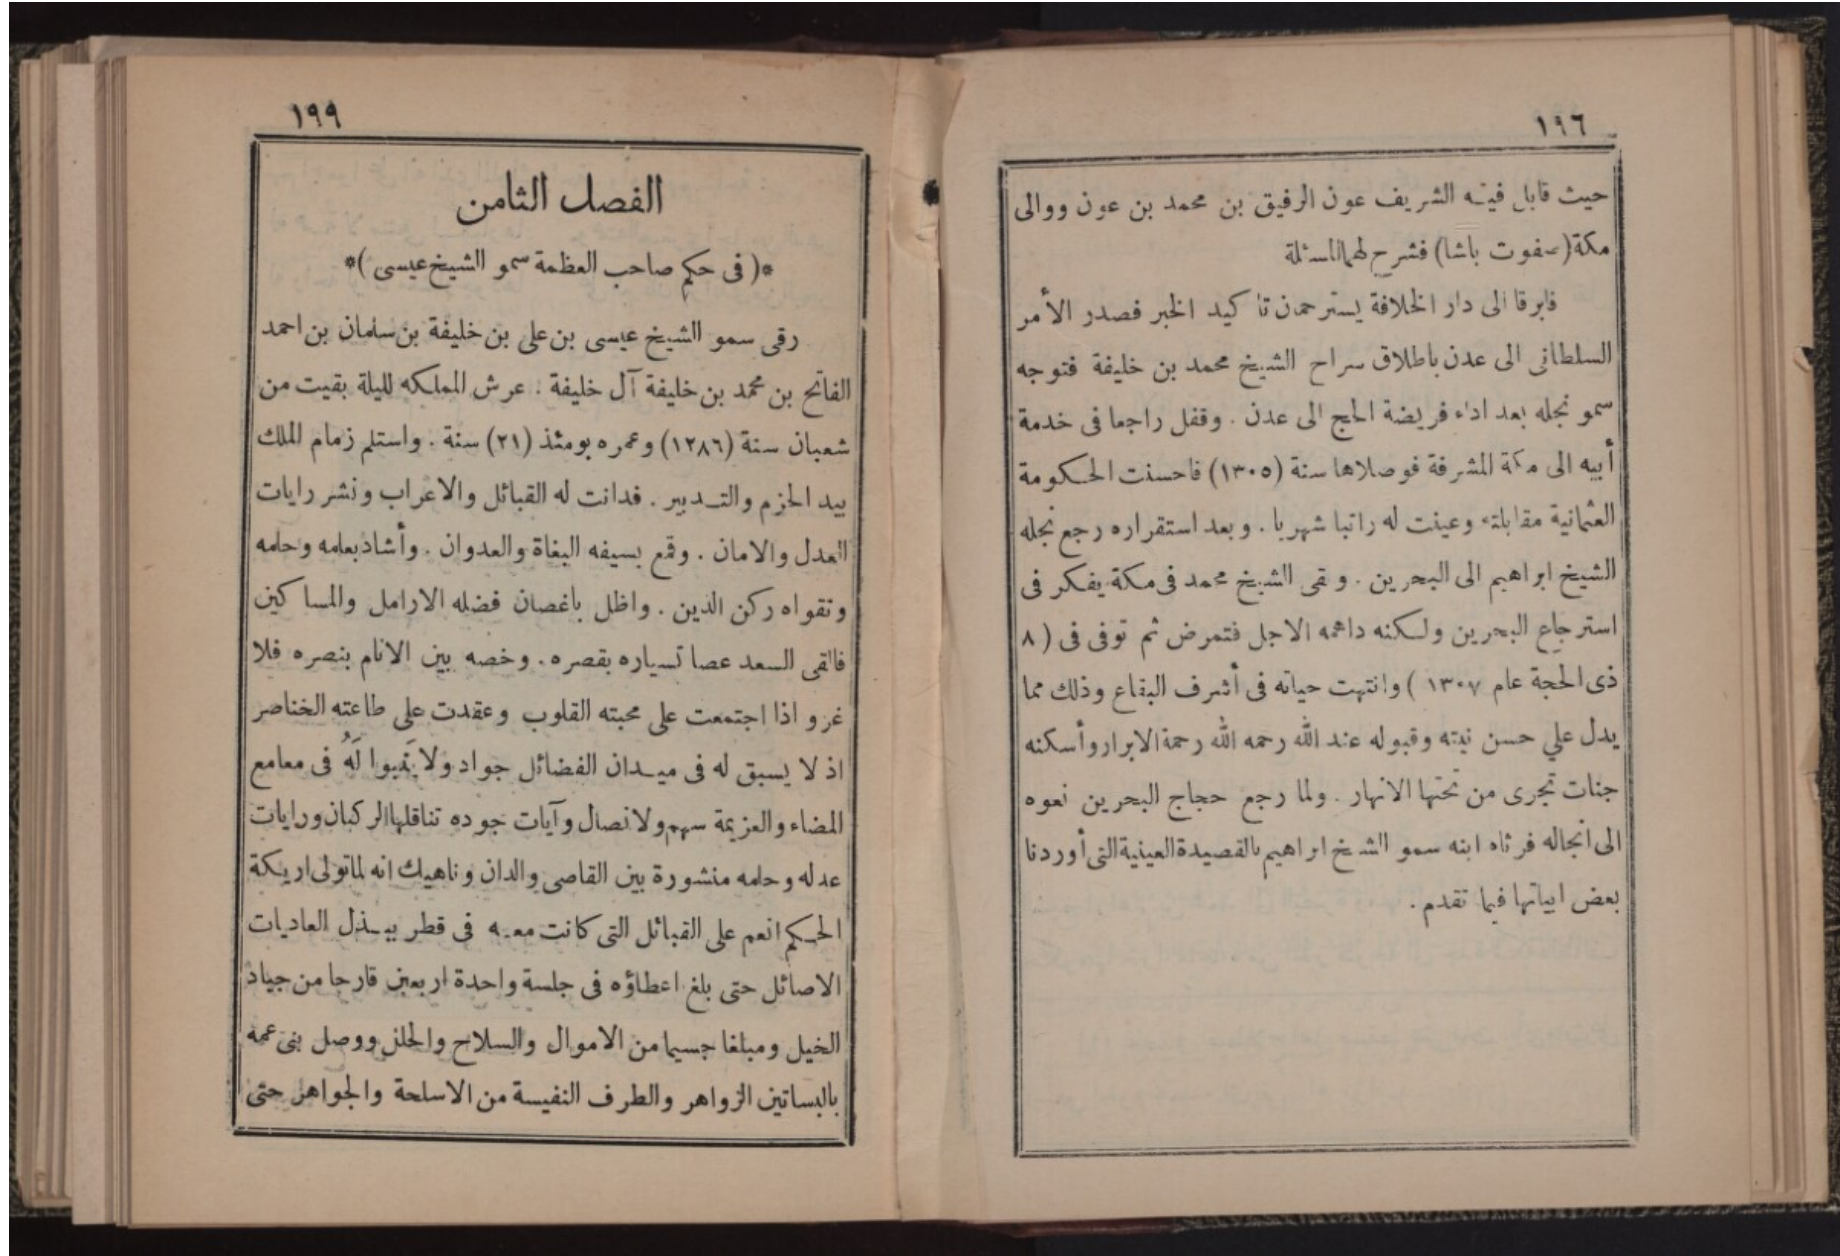 ١٩٦
حيث قابل فيه الشريف عون الرفيق بن محمد بن عون ووالى
مكة (صفوت باشا) فشرح لهما المسئلة
فابرقا الى دار الخلافة يسترحمان تأكيد الخبر فصدر الأمر
السلطانى الى عدن باطلاق سراح الشيخ محمد بن خليفة فتوجه
سمو نجله بعد اداء فريضة الحج الى عدن . وقفل راجعا فى خدمة
أبيه الى مكة المشرفة فوصلاها سنة (١٣٠٥) فاحسنت الحكومة
العثمانية مقابلته وعينت له راتبا شهريا . وبعد استقراره رجع نجله
الشيخ ابراهيم الى البحرين . وبقى الشيخ محمد فى مكة يفكر فى
استرجاع البحرين ولكنه داهمه الاجل فتمرض ثم توفى فى ( ٨
ذى الحجة عام ١٣٠٧ ) وانتهت حياته فى أشرف البقاع وذلك مما
يدل علي حسن نيته وقبوله عند الله رحمه الله رحمة الابرار وأسكنه
جنات تجرى من تحتها الانهار . ولما رجع حجاج البحرين نعوه
الى انجاله فرثاه ابنه سمو الشيخ ابراهيم بالقصيدة العينية التى أوردنا
بعض ابياتها فيما تقدم .
١٩٩
الفصل الثامن
*( فى حكم صاحب العظمة سمو الشيخ عيسى )*
رقى سمو الشيخ عيسى بن على بن خليفة بن سلمان بن احمد
الفاتح بن محمد بن خليفة آل خليفة . عرش المملكه لليلة بقيت من
شعبان سنة (١٢٨٦) وعمره يومئذ (٢١) سنة . واستلم زمام الملك
بيد الحزم والتدبير . فدانت له القبائل والاعراب ونشر رايات
العدل والامان . وقمع بسيفه البغاة والعدوان . وأشاد بعلمه وحلمه
وتقواه ركن الدين . واظل باغصان فضله الارامل والمساكين
فالقى السعد عصا تسياره بقصره . وخصه بين الانام بنصره فلا
غرو اذا اجتمعت على محبته القلوب وعقدت على طاعته الخناصر
اذ لا يسبق له فى ميدان الفضائل جواد ولا ينبوا لَهُ فى معامع
المضاء والعزيمة سهم ولا نصال وآيات جوده تناقلها الركبان ورايات
عدله وحلمه منشورة بين القاصى والدان وناهيك انه لما تولى اريكة
الحكم انعم على القبائل التى كانت معه فى قطر يبذل العاديات
الاصائل حتى بلغ اعطاؤه فى جلسة واحدة اربعين قارحا من جياد
الخيل ومبلغا جسيما من الاموال والسلاح والحلل ووصل بنى عمه
بالبساتين الزواهر والطرف النفيسة من الاسلحة والجواهر حتى